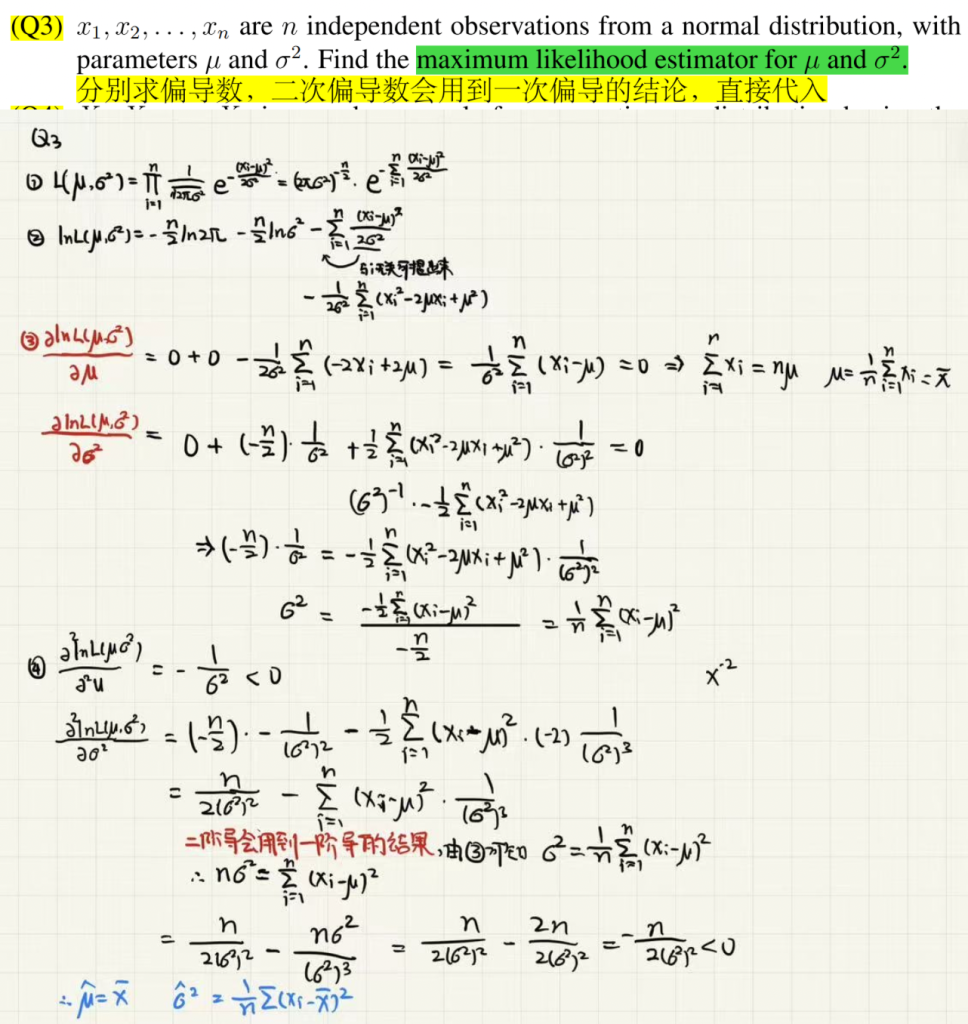 (Q3) x₁, x₂, . . . , xₙ are n independent observations from a normal distribution, with
parameters μ and σ². Find the maximum likelihood estimator for μ and σ².
分别求偏导数，二次偏导数会用到一次偏导的结论，直接代入
Q3
① L(μ,σ²) = ∏_{i=1}^{n} 1/√(2πσ²) e^{-(xi-μ)²/2σ²} = (2πσ²)^{-n/2} · e^{-∑_{i=1}^{n} (xi-μ)²/2σ²}
② lnL(μ,σ²) = -n/2 ln2π - n/2 lnσ² - ∑_{i=1}^{n} (xi-μ)²/2σ²
与i无关可提出来
- 1/2σ² ∑_{i=1}^{n} (xi² - 2μxi + μ²)
③ ∂lnL(μ,σ²)/∂μ = 0 + 0 - 1/2σ² ∑_{i=1}^{n} (-2xi + 2μ) = 1/σ² ∑_{i=1}^{n} (xi - μ) = 0 ⇒ ∑_{i=1}^{n} xi = nμ μ = 1/n ∑_{i=1}^{n} xi = x̄
∂lnL(μ,σ²)/∂σ² = 0 + (-n/2) · 1/σ² + 1/2 ∑_{i=1}^{n} (xi² - 2μxi + μ²) · 1/(σ²)² = 0
(σ²)⁻¹ · -1/2 ∑_{i=1}^{n} (xi² - 2μxi + μ²)
⇒ (-n/2) · 1/σ² = -1/2 ∑_{i=1}^{n} (xi² - 2μxi + μ²) · 1/(σ²)²
σ² = (-1/2 ∑_{i=1}^{n} (xi - μ)²)/(-n/2) = 1/n ∑_{i=1}^{n} (xi - μ)²
④ ∂²lnL(μ,σ²)/∂²μ = - 1/σ² < 0 x⁻²
∂²lnL(μ,σ²)/∂σ² = (-n/2) · - 1/(σ²)² - 1/2 ∑_{i=1}^{n} (xi - μ)² · (-2) 1/(σ²)³
= n/2(σ²)² - ∑_{i=1}^{n} (xi - μ)² · 1/(σ²)³
二阶导会用到一阶导的结果，由③可知 σ² = 1/n ∑_{i=1}^{n} (xi - μ)²
∴ nσ² = ∑_{i=1}^{n} (xi - μ)²
= n/2(σ²)² - nσ²/(σ²)³ = n/2(σ²)² - 2n/2(σ²)² = - n/2(σ²)² < 0
∴ μ̂ = x̄ σ̂² = 1/n ∑(xi - x̄)²